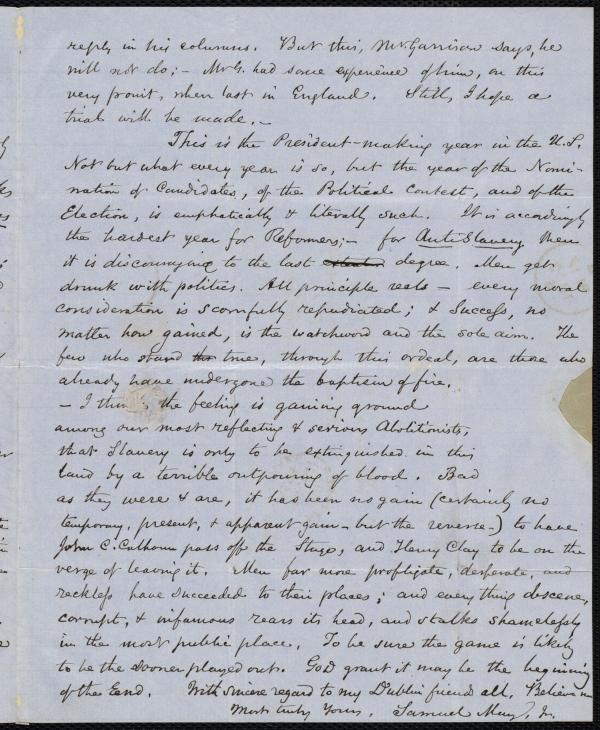 reply in his columns. But this, Mr. Garrison says, he
will not do; – Mr G. had some experience of him, on this
very point, when last in England. Still, I hope a
trial will be made. –
This is the President-making year in the U.S.
Not but what every year is so, but the year of the Nomi-
nation of Candidates, of the Political Contest, and of the
Election, is emphatically & literally such. It is accordingly
the hardest year for Reformers; – for AntiSlavery Men
it is discouraging to the last degree. Men get
drunk with politics. All principle reels – every moral
consideration is scornfully repudiated; & Success, no
matter how gained, is the watchword and the sole aim. The
few who stand true, through this ordeal, are those who
already have undergone the baptism of fire.
– I think the feeling is gaining ground
among our most reflecting & serious Abolitionists,
that Slavery is only to be extinguished in this
land by a terrible outpouring of blood. Bad
as they were & are, it has been no gain (certainly no
temporary, present, & apparent gain – but the reverse –) to have
John C. Calhoun pass off the Stage, and Henry Clay to be on the
verge of leaving it. Men far more profligate, desperate, and
reckless have succeeded to their places; and every thing obscene,
corrupt, & infamous rears its head, and stalks shamelessly
in the most public place. To be sure the game is likely
to be the sooner played out. God grant it may be the beginning
of the End. With sincere regard to my Dublin friends all, Believe me
Most truly Yours, Samuel May, Jr.